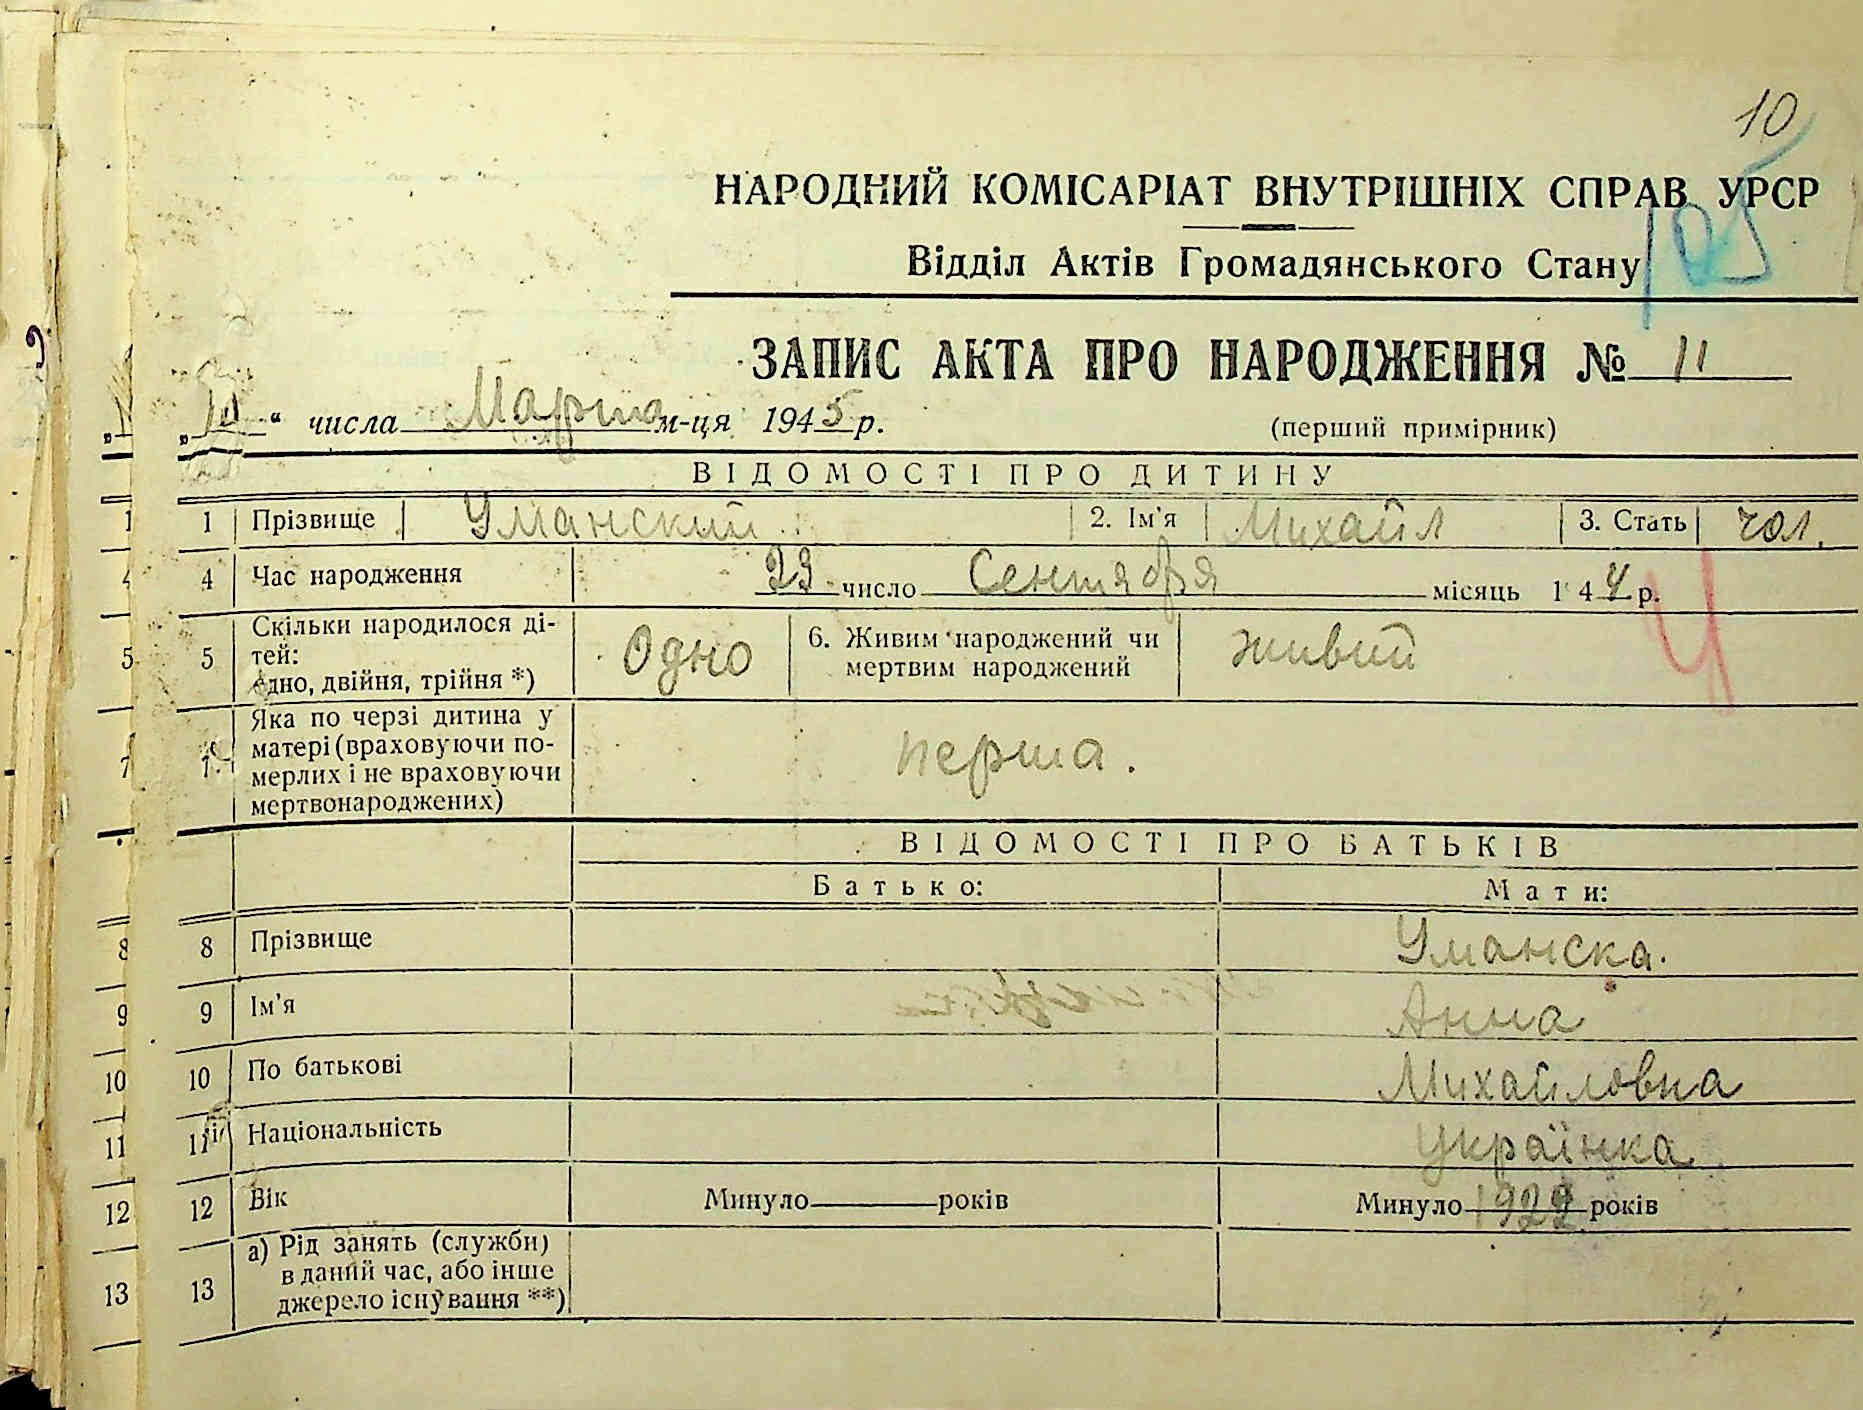 10
105
НАРОДНИЙ КОМІСАРІАТ ВНУТРІШНІХ СПРАВ УРСР
Відділ Актів Громадянського Стану
ЗАПИС АКТА ПРО НАРОДЖЕННЯ № 11
„10“ числа Марта м-ця 1945 р.
(перший примірник)
ВІДОМОСТІ ПРО ДИТИНУ
1 Прізвище Уманский 2. Ім'я Михайл 3. Стать чол.
4 Час народження 23 число Сентября місяць 1944 р.
5 Скільки народилося ді-
тей:
одно, двійня, трійня *) Одно 6. Живим народжений чи
мертвим народжений живий
Ч
7 Яка по черзі дитина у
матері (враховуючи по-
мерлих і не враховуючи
мертвонароджених) перша.
ВІДОМОСТІ ПРО БАТЬКІВ
Батько: Мати:
8 Прізвище Уманска.
9 Ім'я Анна
10 По батькові Михайловна
11 Національність Українка
12 Вік Минуло років Минуло 1922 років
13 а) Рід занять (служби)
в даний час, або інше
джерело існування **)